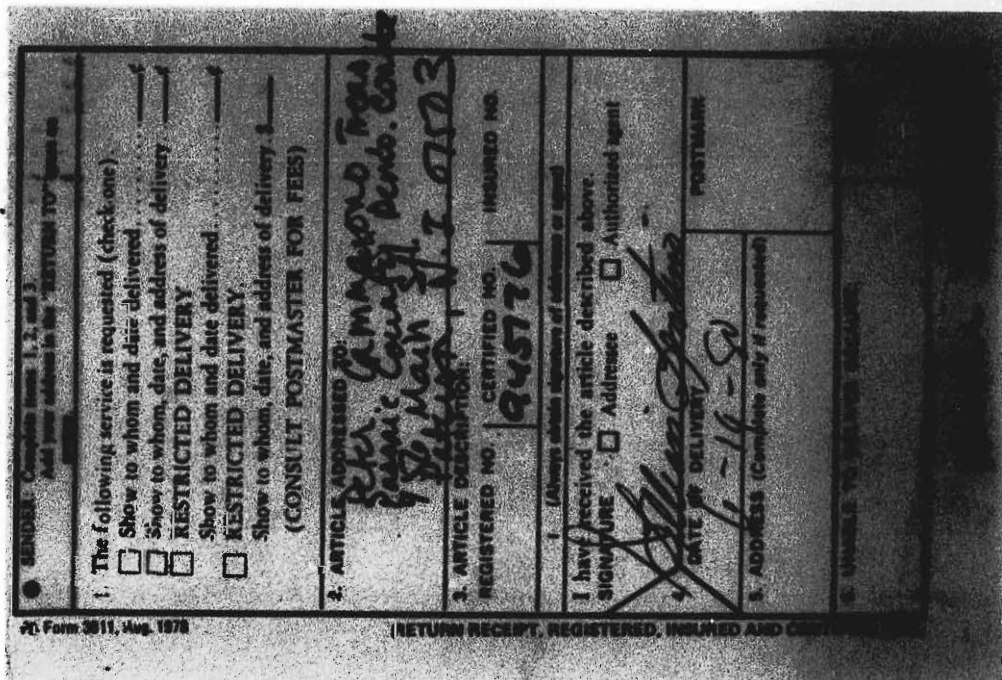 SENDER: Complete items 1, 2, and 3.
Add your address in the "RETURN TO" space on
1. The following service is requested (check one).
Show to whom and date delivered
Show to whom, date, and address of delivery
RESTRICTED DELIVERY
Show to whom and date delivered
RESTRICTED DELIVERY.
Show to whom, date, and address of delivery. $
(CONSULT POSTMASTER FOR FEES)
2. ARTICLE ADDRESSED TO:
Peter
Passaic County
Main St
N.J. 07503
3. ARTICLE DESCRIPTION:
REGISTERED NO. CERTIFIED NO. INSURED NO.
9457776
(Always obtain signature of addressee or agent)
I have received the article described above.
SIGNATURE Addressee Authorized agent
4. DATE OF DELIVERY POSTMARK
5. ADDRESS (Complete only if requested)
6. UNABLE TO DELIVER BECAUSE:
PS Form 3811, Aug. 1978
RETURN RECEIPT, REGISTERED, INSURED AND